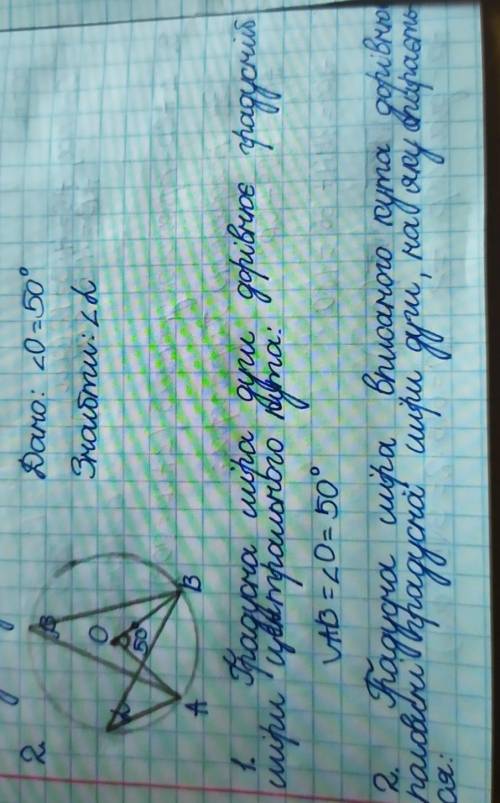 2.
Дано: ∠O=50°
Знайти: ∠α
B
O
50°
α
A
B
1. Градусна міра дуги дорівнює градусній
міри центрального кута:
◡AB=∠O=50°
2. Градусна міра вписаного кута дорівнює
половині градусній міри дуги, на яку опираєть-
ся: